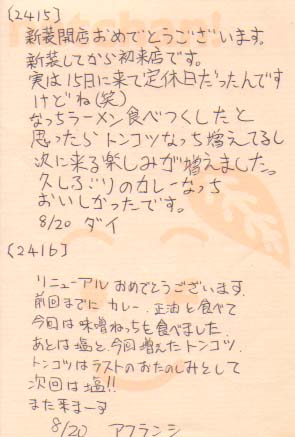 (2415)
新装開店おめでとうございます。
新装してから初来店です。
実は15日に来て定休日だったんです
けどね(笑)
なっちラーメン食べつくしたと
思ったらトンコツなっち増えてるし
次に来る楽しみが増えました。
久しぶりのカレーなっち
おいしかったです。
8/20 ダイ
(2416)
リニューアルおめでとうございます.
前回までにカレー、正油と食べて
今回は味噌ねっちも食べました.
あとは塩と、今回増えたトンコツ.
トンコツはラストのおたのしみとして
次回は塩!!
また来まーす
8/20 アフランシ